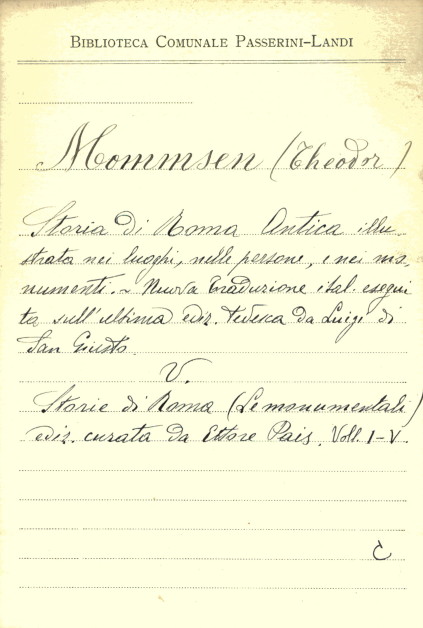 BIBLIOTECA COMUNALE PASSERINI-LANDI
Mommsen (Theodor)
Storia di Roma Antica illu-
strata nei luoghi, nelle persone, e nei mo-
numenti. ~ Nuova traduzione ital. esegui
ta sull'ultima ediz. tedesca da Luigi di
San Giusto.
V.
Storie di Roma (Le monumentali)
ediz. curata da Ettore Pais. Voll. I-V.
C